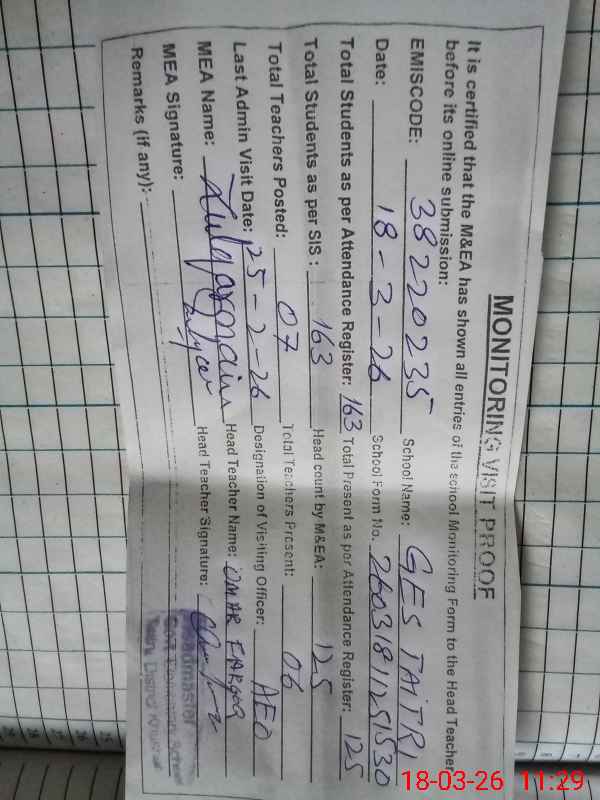 MONITORING VISIT PROOF
It is certified that the M&EA has shown all entries of the school Monitoring Form to the Head Teacher
before its online submission:
EMISCODE: 38220235 School Name: GES TAITRI
Date: 18-3-26 School Form No. 260318112S1530
Total Students as per Attendance Register: 163 Total Present as per Attendance Register: 125
Total Students as per SIS: 163 Head count by M&EA: 125
Total Teachers Posted: 07 Total Teachers Present: 06
Last Admin Visit Date: 25-2-26 Designation of Visiting Officer: AEO
MEA Name: Head Teacher Name: UMAR FAROOQ
MEA Signature: Head Teacher Signature:
Remarks (if any):
Headmaster
Govt Elementary School
District Khushab
18-03-26 11:29